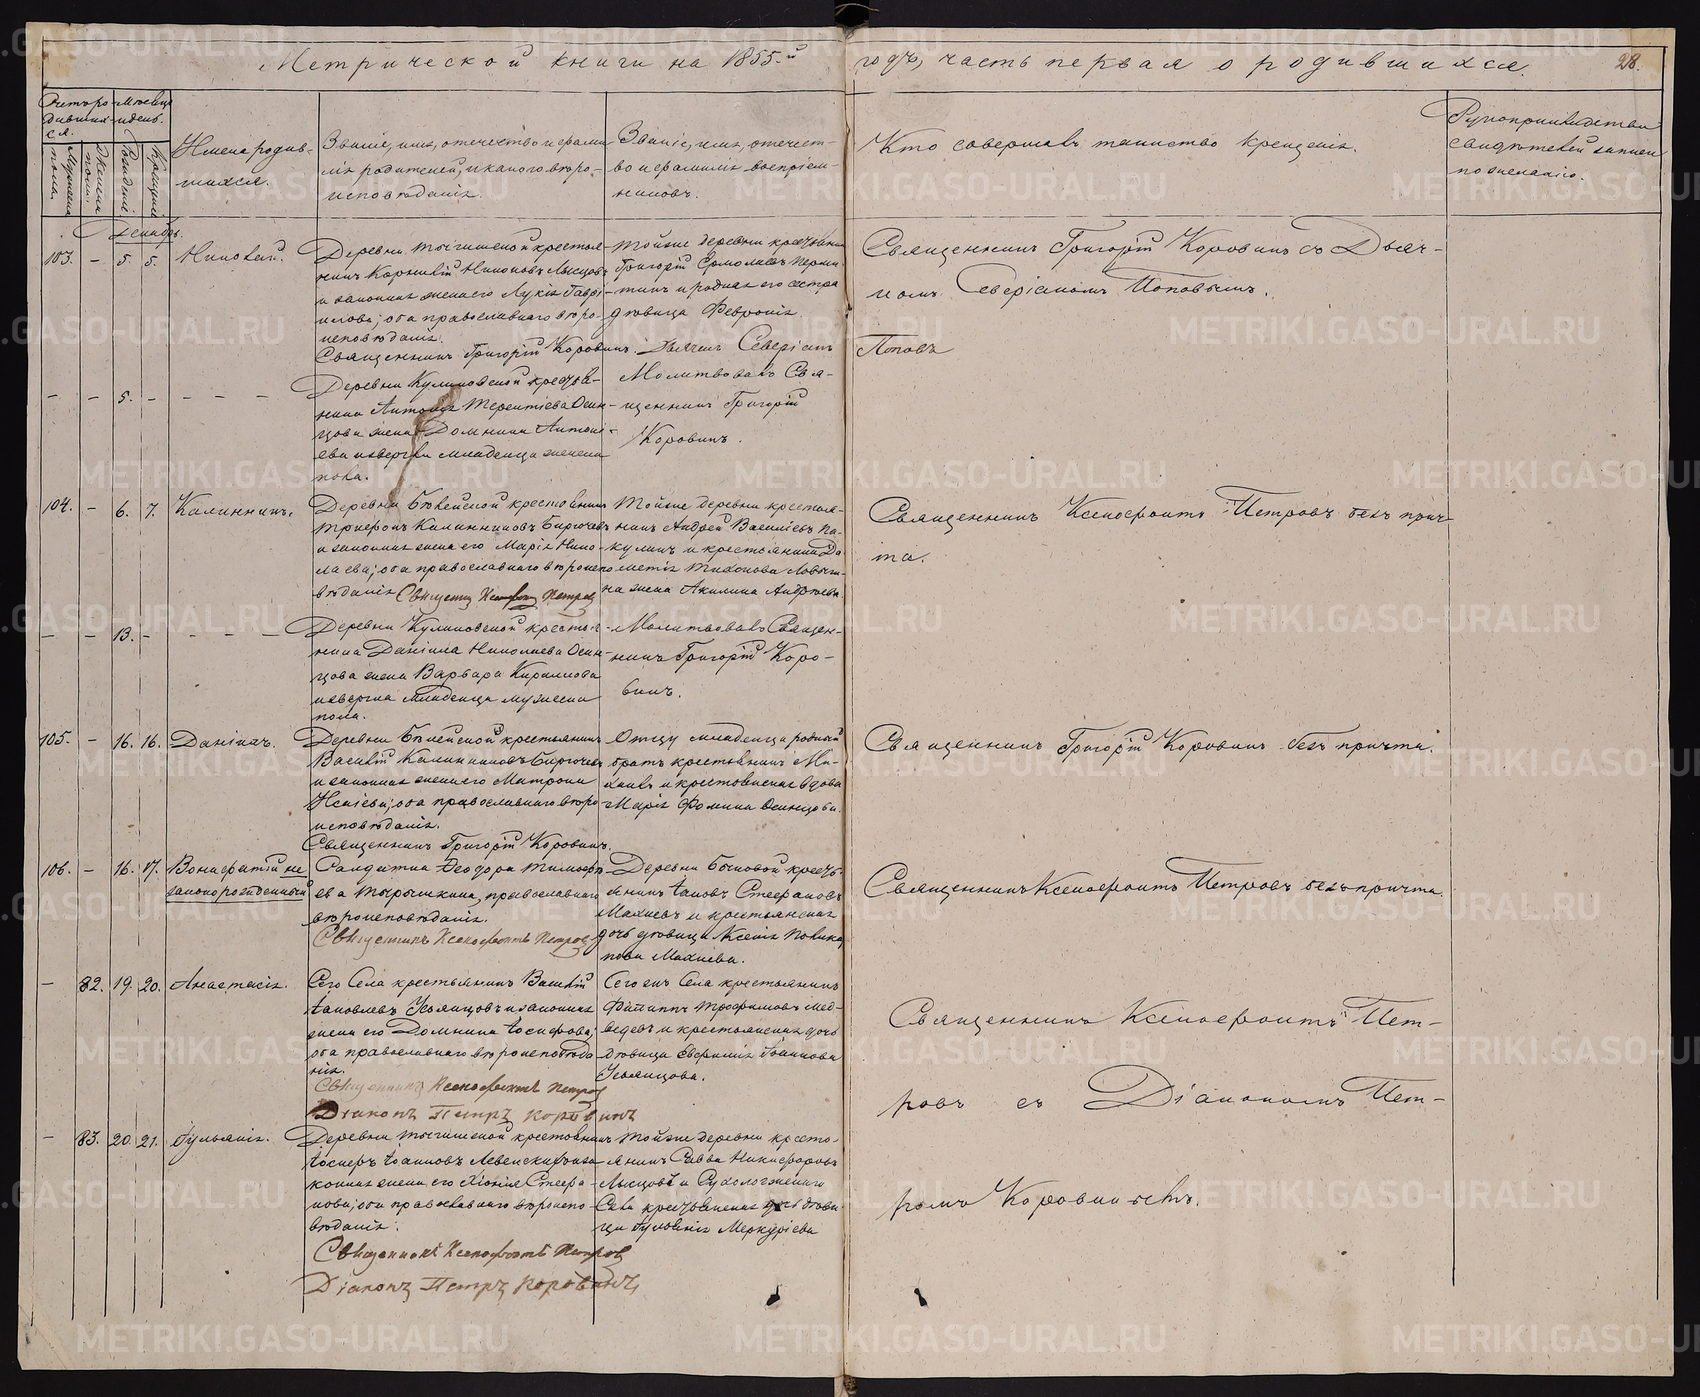 Метрической книги на 1855.й годъ, часть первая о родившихся.
28.
Счетъ родившихся.
Мѣсяцъ и день.
Мужеска пола.
Женска пола.
Рожденія
Крещенія
Имена родившихся.
Званіе, имя, отечество и фамилія родителей, и какого вѣроисповѣданія.
Званіе, имя, отечество и фамилія воспріемниковъ.
Кто совершалъ таинство крещенія.
Рукоприкладство свидѣтелей записи по желанію.
Декабрь.
103. – 5. 5. Николай.
Деревни Тыгишской крестья-
нинъ Корнилій Никоновъ Лысцовъ
и законная жена его Лукія Гаврі-
илова; оба православнаго вѣро-
исповѣданія.
Священникъ Григорій Коровинъ. Дьячекъ Северіанъ Поповъ
Тойже деревни крестьянинъ
Григорій Ермолаевъ
и родная его сестра
дѣвица Февронія.
Священникъ Григорій Коровинъ съ Дьяч-
комъ Северіаномъ Поповымъ.
– – 5. – – – –
Деревни Куликовской крестья-
нина Антонія Терентіева Осин-
цова жена Домника Антоні-
ева извергла младенца женска
пола.
Молитвовалъ Свя-
щенникъ Григорій
Коровинъ.
104. – 6. 7. Каллинникъ.
Деревни Бѣлейской крестьянинъ
Трифонъ Калинниковъ Бирючевъ
и законная жена его Марія Нико-
лаева; оба православнаго вѣроиспо-
вѣданія Священникъ Ксенофонтъ Петровъ
Тойже деревни крестья-
нинъ Андрей Васильевъ Па-
кулинъ и крестьянина До-
метія Тихонова
на жена Акилина Андреева.
Священникъ Ксенофонтъ Петровъ безъ прич-
та.
– – 13. – – – –
Деревни Куликовской крестья-
нина Даніила Николаева Осин-
цова жена Варвара Кириллова
извергла младенца мужеска
пола.
Молитвовалъ Священ-
никъ Григорій Коро-
винъ.
105. – 16. 16. Даніилъ.
Деревни Бѣлейской крестьянинъ
Василій Калинниковъ Бирючевъ
и законная жена его Матрона
Исаіева; оба православнаго вѣро-
исповѣданія.
Священникъ Григорій Коровинъ.
Отцу младенца родный
братъ крестьянинъ Ми-
хаилъ и крестьянская вдова
Марія Фомина Осинцова.
Священникъ Григорій Коровинъ безъ причта.
106. – 16. 17. Вонифатій не
законорожденный
Солдатка Ѳеодора Тимофе-
ева Тырышкина, православнаго
вѣроисповѣданія.
Священникъ Ксенофонтъ Петровъ
Деревни Быковой кресть-
янинъ Іаковъ Стефановъ
Махневъ и крестьянская
дочь дѣвица Ксенія
Махнева.
Священникъ Ксенофонтъ Петровъ безъ причта.
– 82. 19. 20. Анастасія.
Сего Села крестьянинъ Василій
Іаковлевъ Усьянцовъ и законная
жена его Домника Іосифова;
оба православнаго вѣроисповѣда-
нія.
Священникъ Ксенофонтъ Петровъ
Діаконъ Петръ Коровинъ
Сего же Села крестьянинъ
Филиппъ Трофимовъ Мед-
ведевъ и крестьянская дочь
дѣвица Евфимія Іоаннова
Усьянцова.
Священникъ Ксенофонтъ Пет-
ровъ съ Діакономъ Пет-
ромъ Коровинымъ.
– 83. 20. 21. Іуліанія.
Деревни Тыгишской крестьянинъ
Іосифъ Іоанновъ Левенскихъ и за-
конная жена его Хіонія Стефа-
нова; оба православнаго вѣроиспо-
вѣданія.
Священникъ Ксенофонтъ Петровъ
Діаконъ Петръ Коровинъ
Тойже деревни кресть-
янинъ Савва Никифоровъ
Лысцовъ и Сухоложскаго
Села крестьянская дочь дѣви-
ца Іуліанія Меркуріева
METRIKI.GASO-URAL.RU